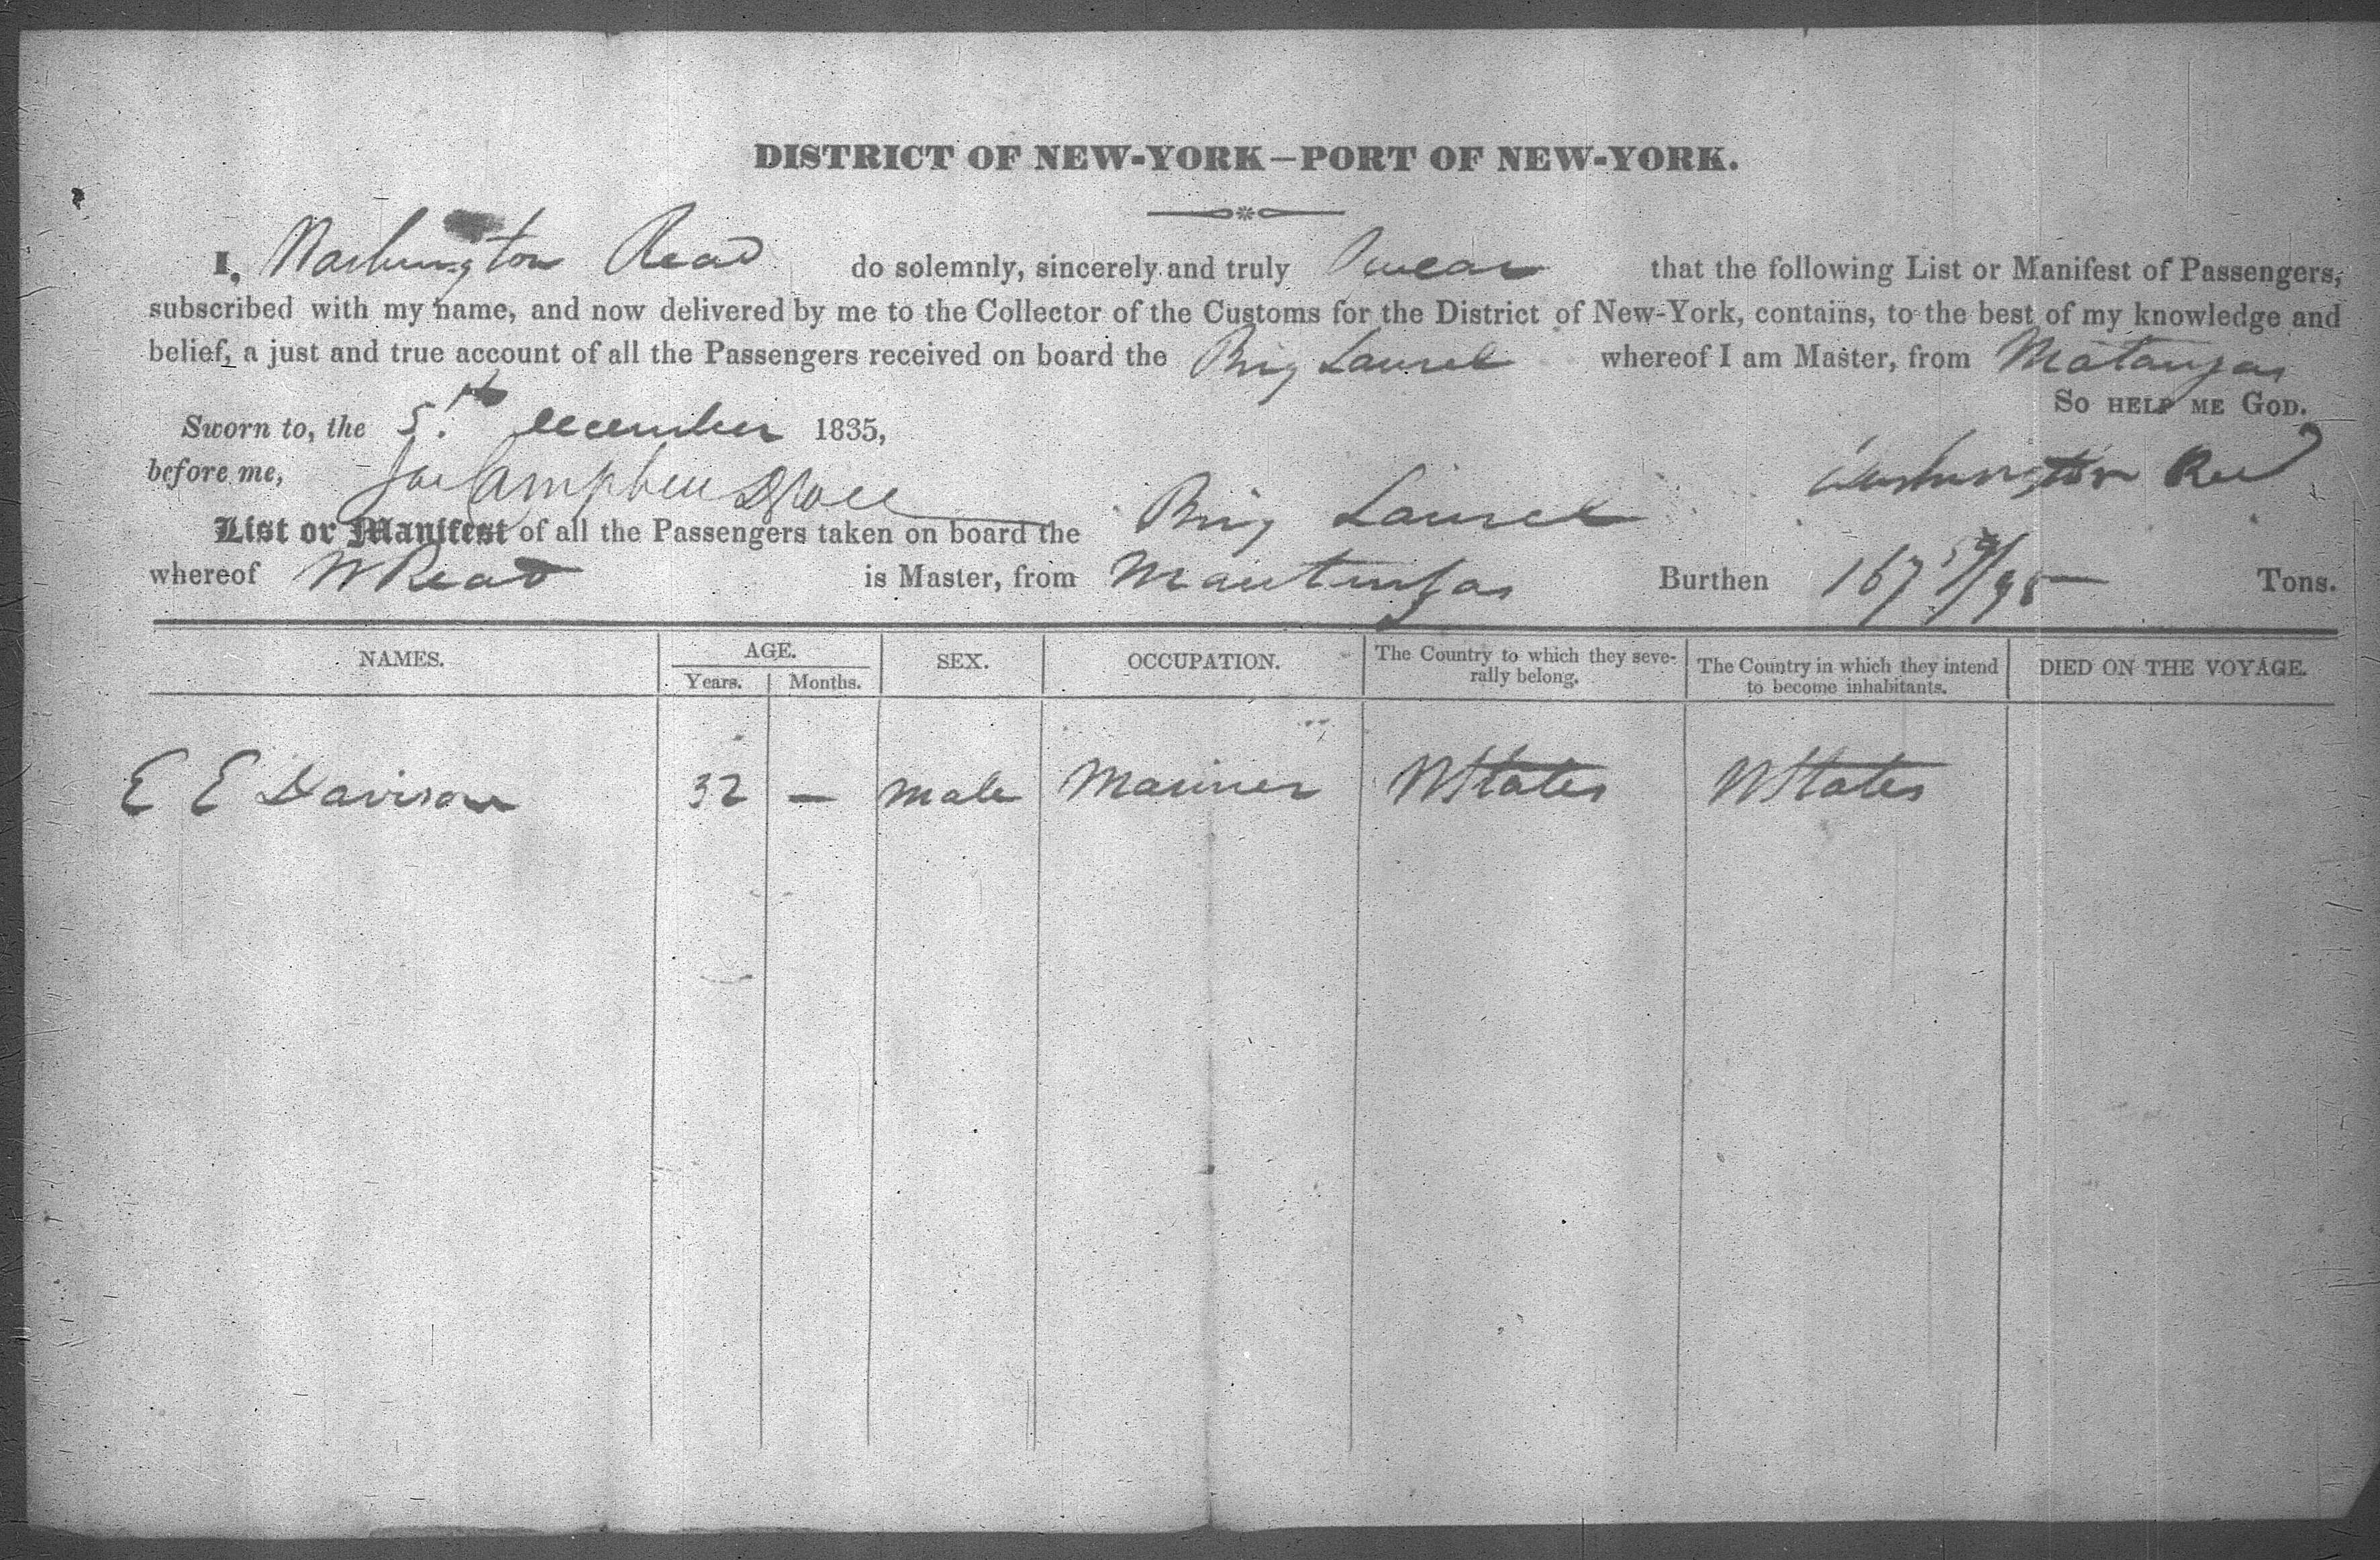 DISTRICT OF NEW-YORK—PORT OF NEW-YORK.
I, Washington Read do solemnly, sincerely and truly Swear that the following List or Manifest of Passengers,
subscribed with my name, and now delivered by me to the Collector of the Customs for the District of New-York, contains, to the best of my knowledge and
belief, a just and true account of all the Passengers received on board the Brig Laurel whereof I am Master, from Matanzas
So HELP ME GOD.
Sworn to, the 5th December 1835,
before me, Washington Read
List or Manifest of all the Passengers taken on board the Brig Laurel
whereof W Read is Master, from Mautinzas Burthen 167 Tons.
NAMES. AGE. SEX. OCCUPATION. The Country to which they seve- The Country in which they intend DIED ON THE VOYAGE.
Years. Months. rally belong. to become inhabitants.
E E Davison 32 — male Mariner UStates UStates